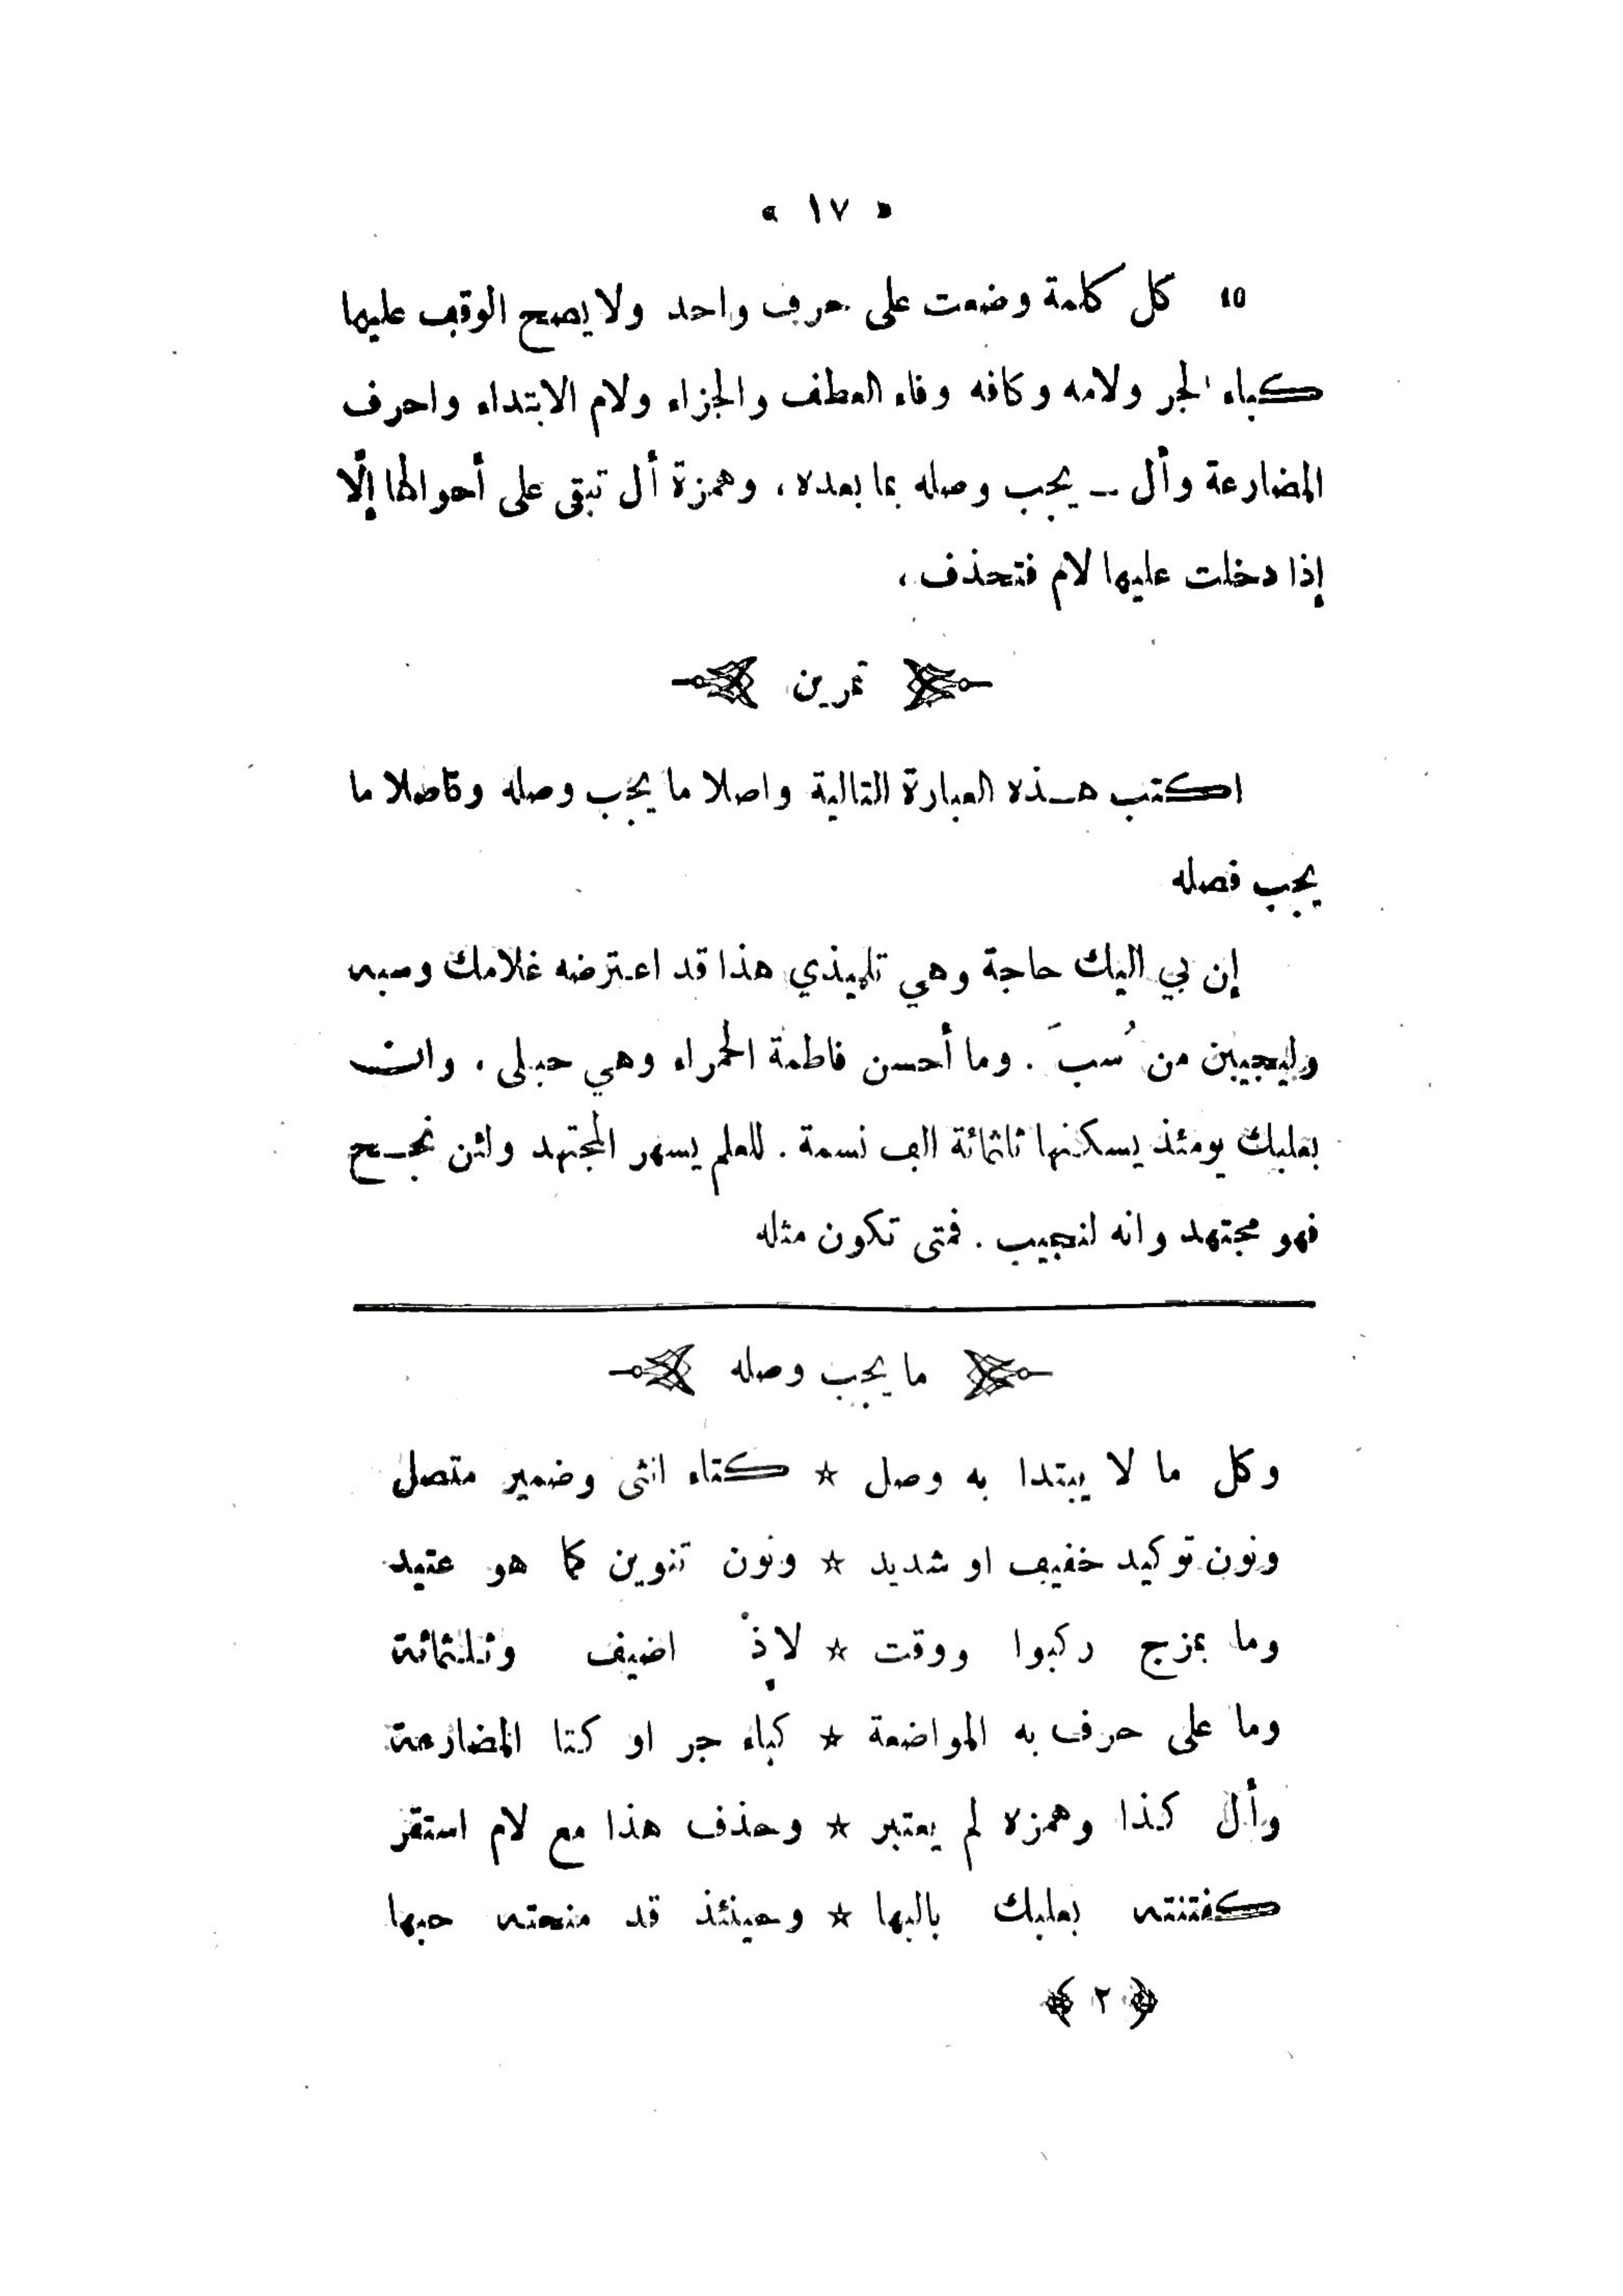 « ١٧ »
١٥ كل كلمة وضعت على حرف واحد ولا يصح الوقف عليها
كباء الجر ولامه وكافه وفاء العطف والجزاء ولام الابتداء واحرف
المضارعة وأل ــ يجب وصله بما بعده ، وهمزة أل تبقى على أحوالها إلّا
إذا دخلت عليها لام فتحذف ،
تمرين
اكتب هـذه العبارة التالية واصلا ما يجب وصله وفاصلا ما
يجب فصله
إن بي اليك حاجة وهي تلميذي هذا قد اعترضه غلامك وسبه
وليجيبن من سُبَ . وما أحسن فاطمة الحمراء وهي حبلى ، وان
بعلبك يومئذ يسكنها ثلثمائة الف نسمة . للعلم يسهر المجتهد ولئن نجـح
فهو مجتهد وانه لنجيب . فمتى تكون مثله
ما يجب وصله
وكل ما لا يبتدا به وصل ☆ كتاء انثى وضمير متصل
ونون توكيد خفيف او شديد ☆ ونون تنوين كما هو عتيد
وما بمزج ركبوا ووقت ☆ لإذْ اضيف وثلثمائة
وما على حرف به المواضعة ☆ كباء جر او كتا المضارعة
وأل كذا وهمزه لم يعتبر ☆ وحذف هذا مع لام استقر
كفتنته بعلبك بالبها ☆ وحينئذ قد منحته حبها
﴿ ٢ ﴾